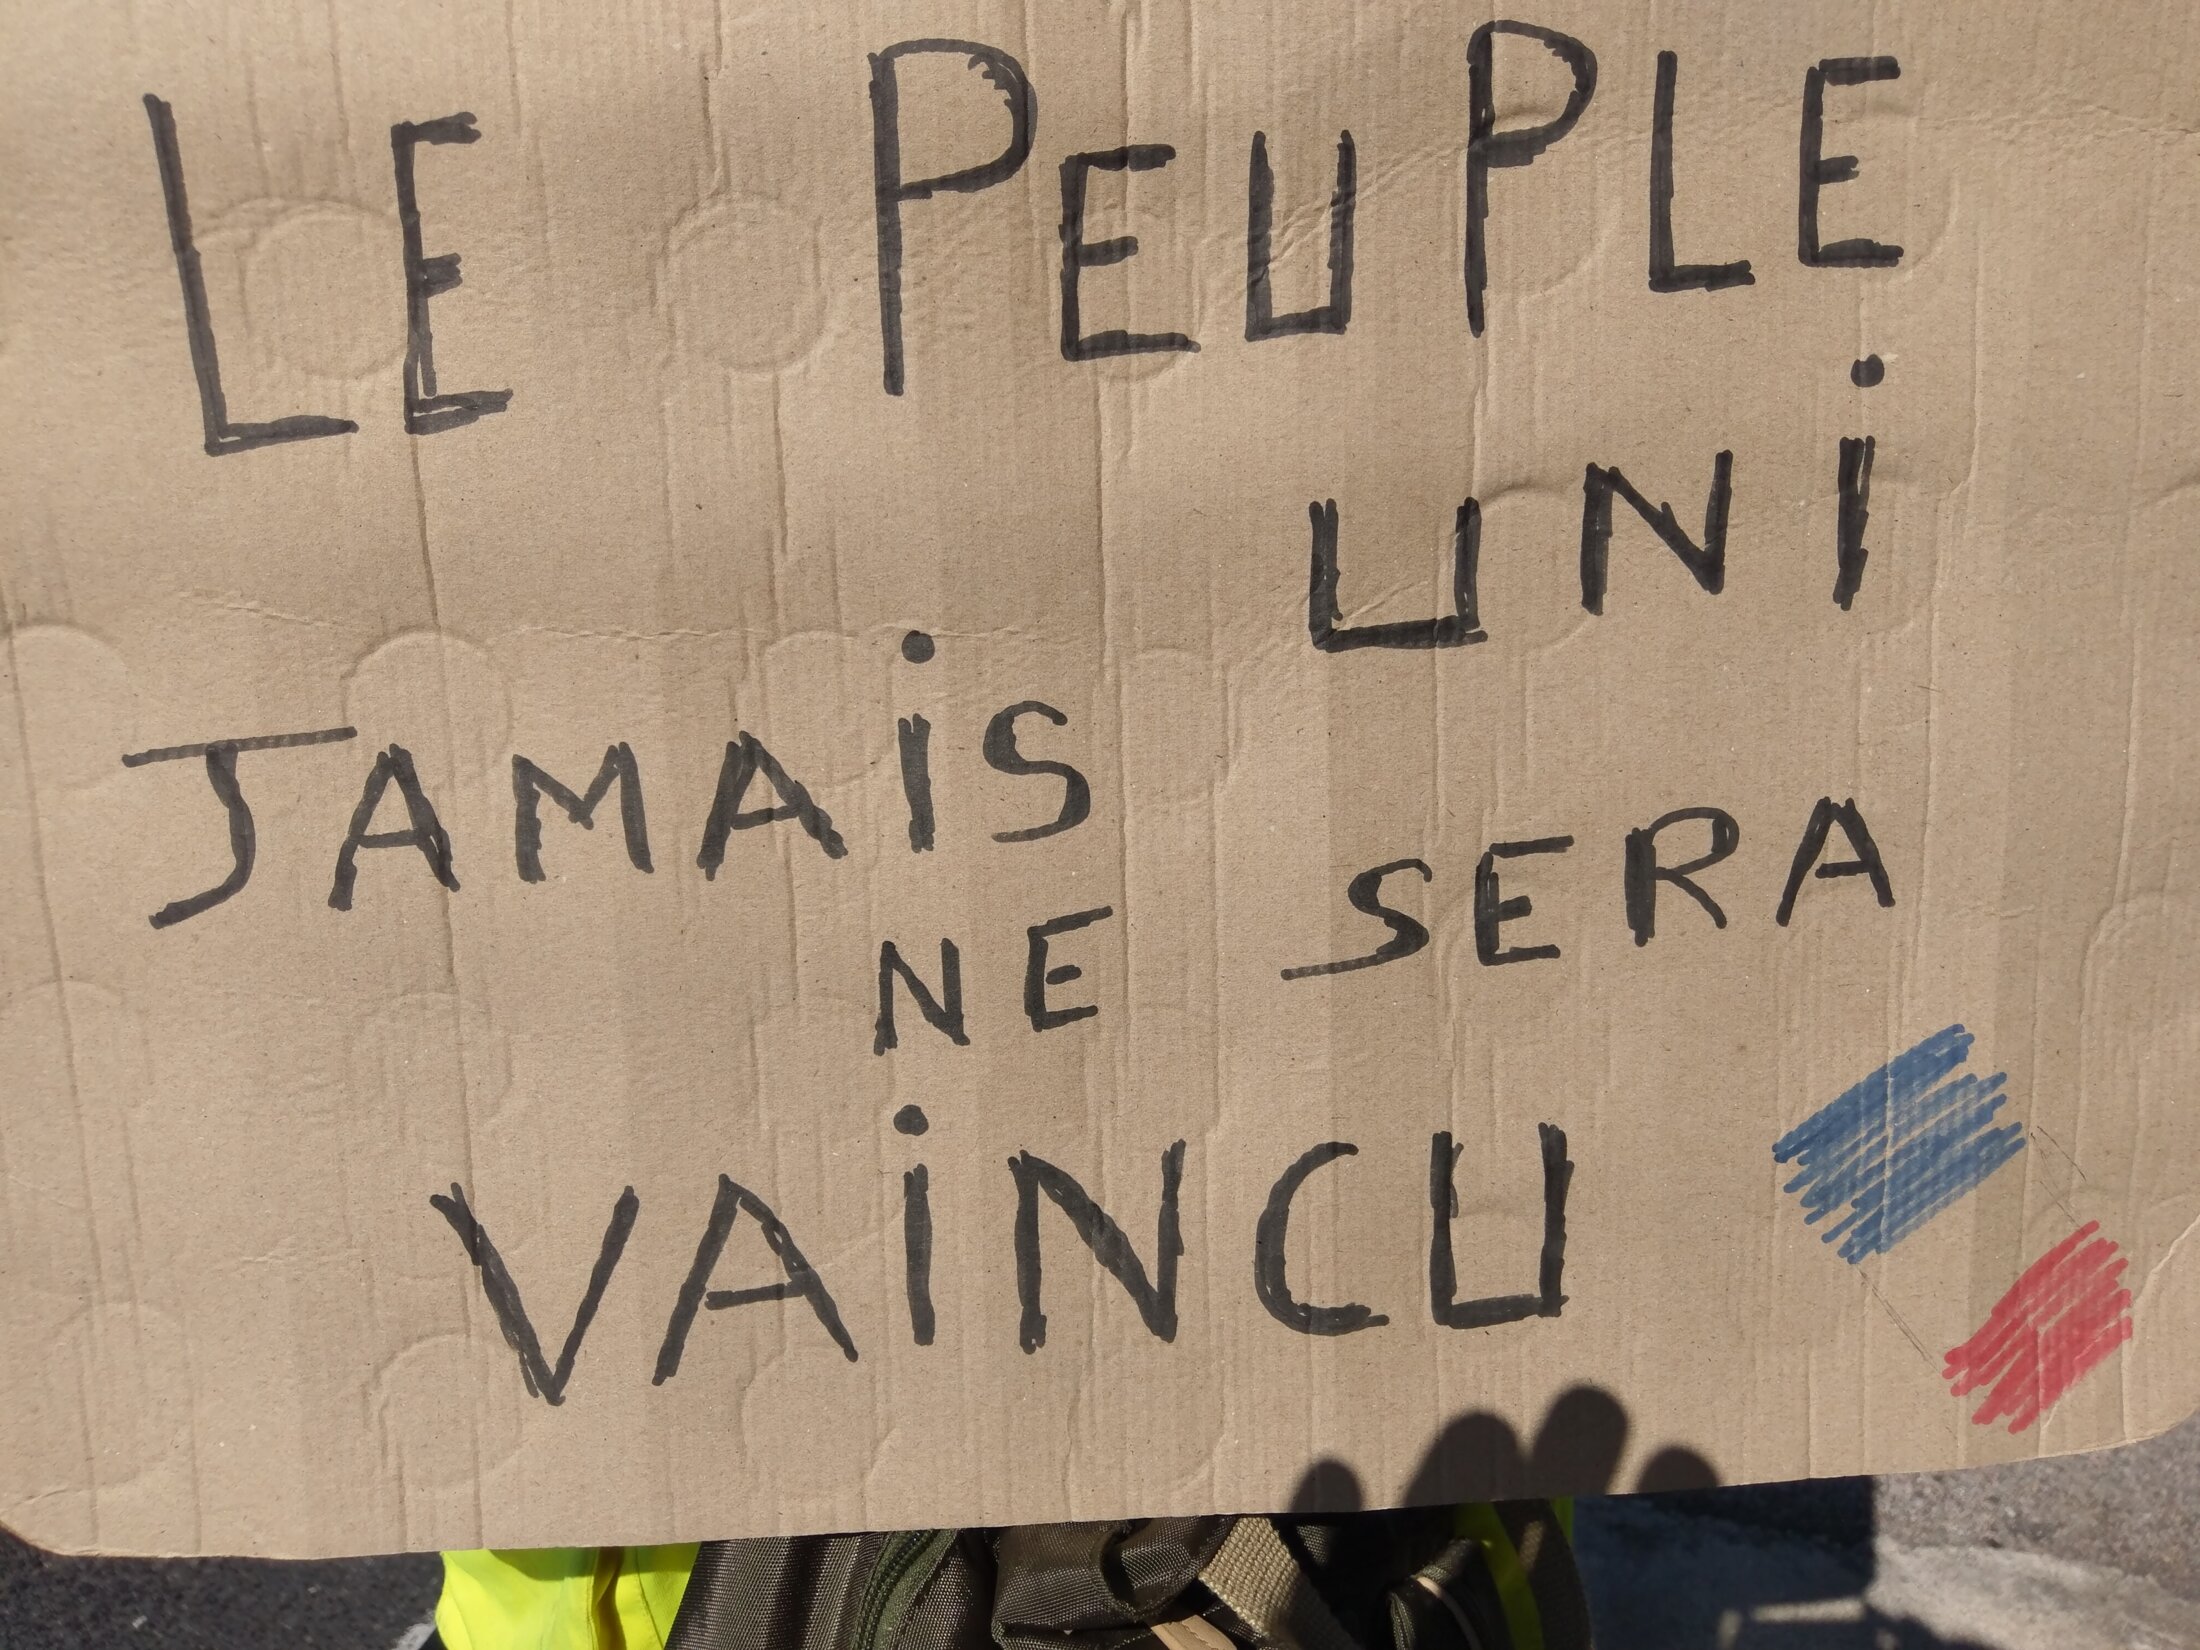 LE PEUPLE
UNi
JAMAiS
NE SERA
VAiNCU